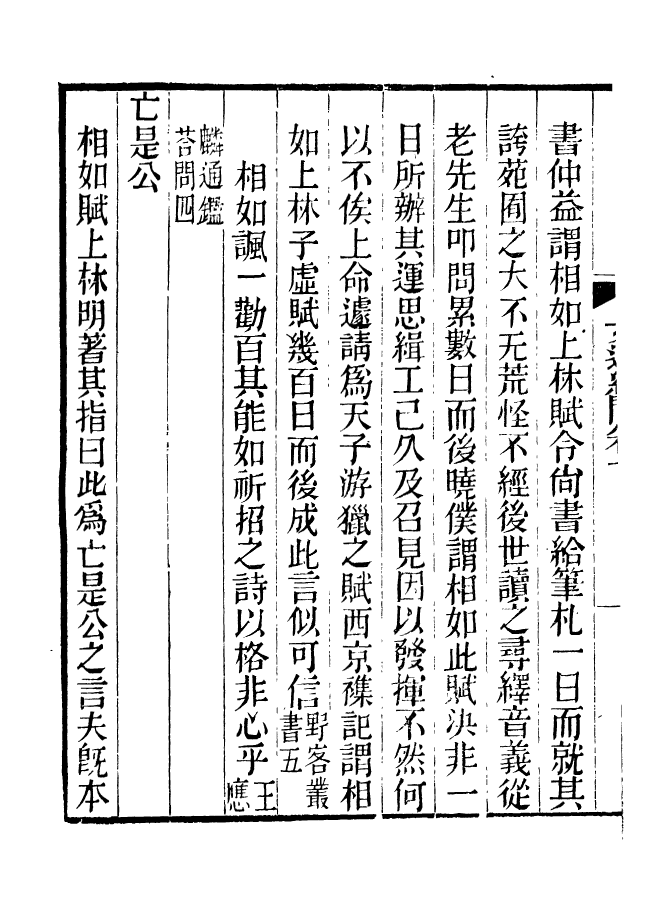 書仲益謂相如上林賦合尙書給筆札一日而就其
誇苑囿之大不无荒怪不經後世讀之尋繹音義從
老先生叩問累數日而後曉僕謂相如此賦決非一
日所辦其運思緝工已久及召見因以發揮不然何
以不俟上命遽請爲天子游獵之賦西京襍記謂相
如上林子虛賦幾百日而後成此言似可信野客叢
書五
相如諷一勸百其能如祈招之詩以格非心乎王
應
麟通鑑
荅問四
亡是公
相如賦上林明著其指曰此爲亡是公之言夫旣本